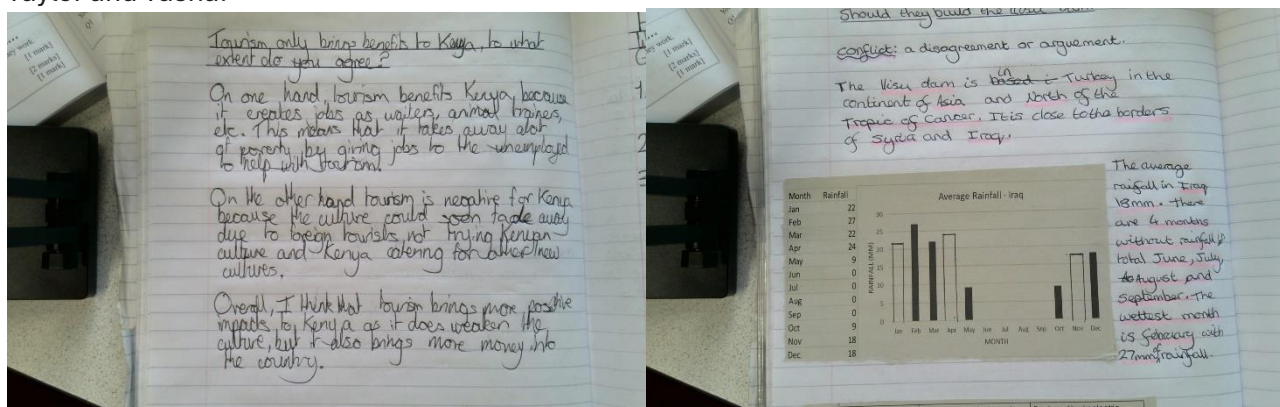 Taylor and
Tourism only brings benefits to Kenya, to what
extent do you agree?
On one hand, tourism benefits Kenya because
it creates jobs as, waiters, animal trainers,
etc. This means that it takes away alot
of poverty by giving jobs to the unemployed
to help with tourism.
On the other hand tourism is negative for Kenya
because the culture could soon fade away
due to foreign tourists not trying Kenyan
culture and Kenya catering for other/new
cultures.
Overall, I think that tourism brings more positive
impacts to Kenya as it does weaken the
culture, but it also brings more money into
the country.
[1 mark]
[2 marks]
[1 mark]
Should they build the Ilisu
conflict: a disagreement or arguement.
The Ilisu dam is in Turkey in the
continent of Asia and North of the
Tropic of Cancer. It is close to the borders
of Syria and Iraq.
Month Rainfall
Jan 22
Feb 27
Mar 22
Apr 24
May 9
Jun 0
Jul 0
Aug 0
Sep 0
Oct 9
Nov 18
Dec 18
Average Rainfall - Iraq
RAINFALL (MM)
30
25
20
15
10
5
0
Jan Feb Mar Apr May Jun Jul Aug Sep Oct Nov Dec
MONTH
The average
rainfall in Iraq
18mm. There
are 4 months
without rainfall in
total June, July,
August and
September. The
wettest month
is febuary with
27mm of rainfall.
[1 mark]
[2 marks]
[1 mark]